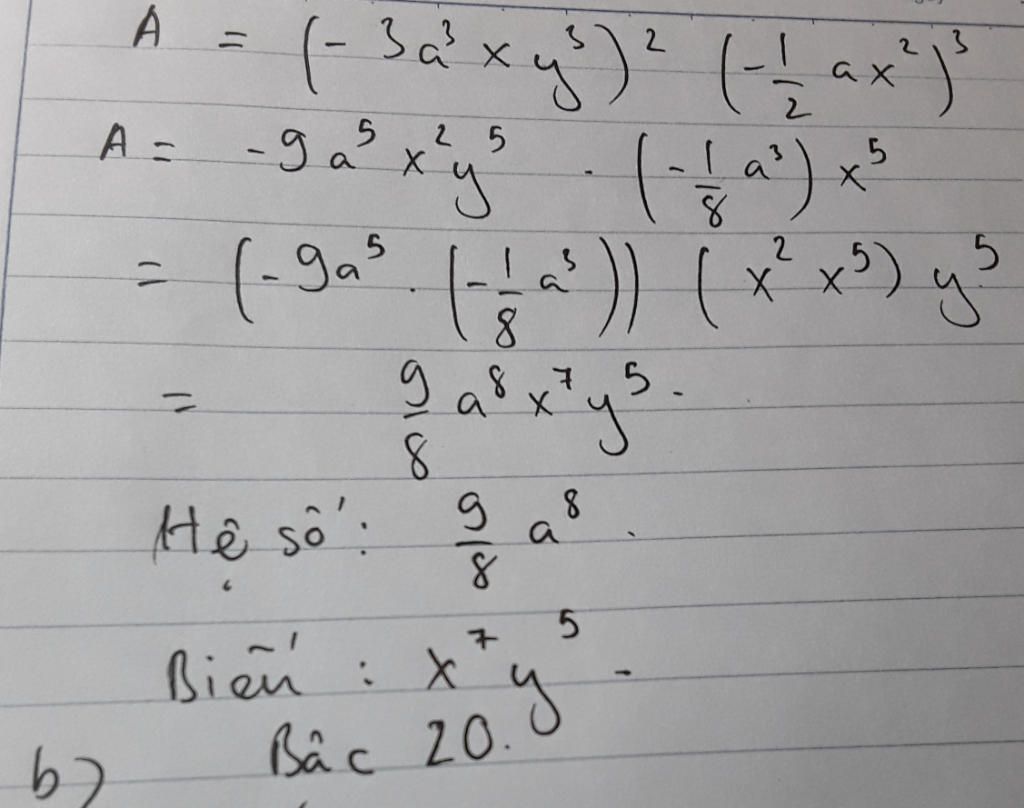 A = (-3a³xy³)² (-1/2 ax²)³
A = -9a⁵x²y⁵ · (-1/8 a³) x⁵
= (-9a⁵ . (-1/8 a³)) (x² x⁵) y⁵
= 9/8 a⁸x⁷y⁵.
Hệ số: 9/8 a⁸.
Biến: x⁷y⁵.
b) Bâc 20.